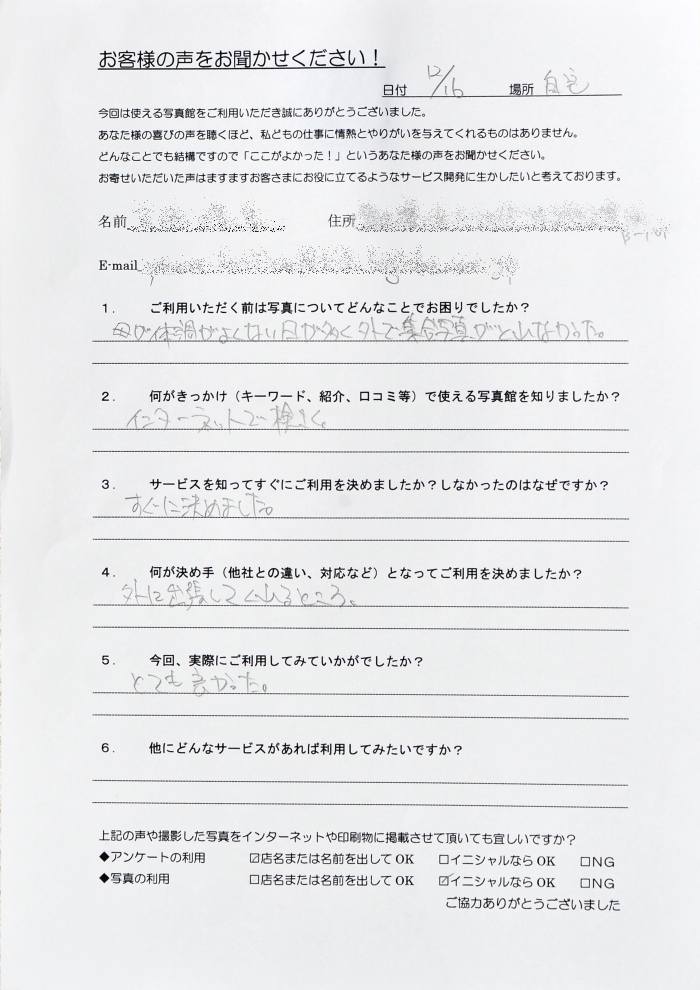 お客様の声をお聞かせください！
日付 12/16 場所 自宅
今回は使える写真館をご利用いただき誠にありがとうございました。
あなた様の喜びの声を聴くほど、私どもの仕事に情熱とやりがいを与えてくれるものはありません。
どんなことでも結構ですので「ここがよかった！」というあなた様の声をお聞かせください。
お寄せいただいた声はますますお客さまにお役に立てるようなサービス開発に生かしたいと考えております。
名前 住所
E-mail
１． ご利用いただく前は写真についてどんなことでお困りでしたか？
母が体調がよくない日が多く外で集合写真がとれなかった。
２． 何がきっかけ（キーワード、紹介、口コミ等）で使える写真館を知りましたか？
インターネットで検さく。
３． サービスを知ってすぐにご利用を決めましたか？しなかったのはなぜですか？
すぐに決めました。
４． 何が決め手（他社との違い、対応など）となってご利用を決めましたか？
外に出張してくれるところ。
５． 今回、実際にご利用してみていかがでしたか？
とても良かった。
６． 他にどんなサービスがあれば利用してみたいですか？
上記の声や撮影した写真をインターネットや印刷物に掲載させて頂いても宜しいですか？
◆アンケートの利用 ☑店名または名前を出してOK □イニシャルならOK □NG
◆写真の利用 □店名または名前を出してOK ☑イニシャルならOK □NG
ご協力ありがとうございました